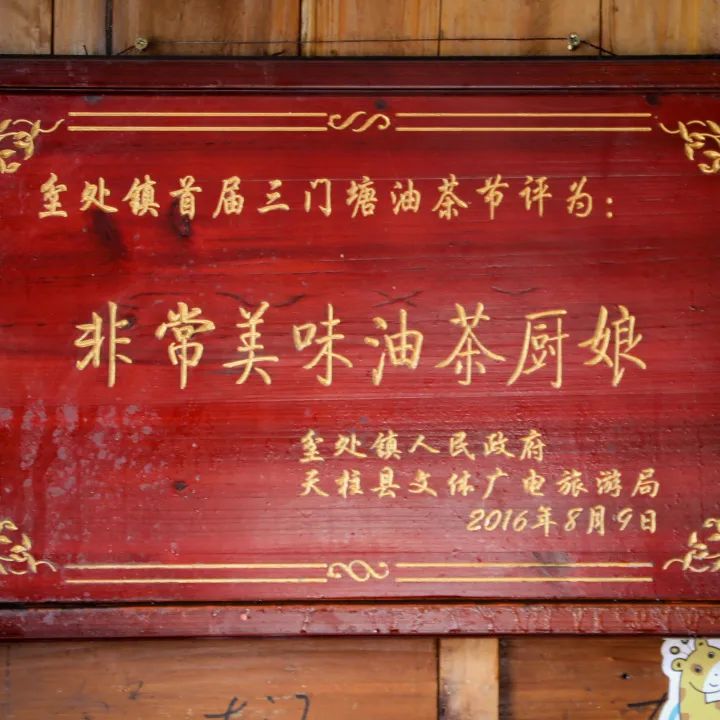 坌处镇首届三门塘油茶节评为：
非常美味油茶厨娘
坌处镇人民政府
天柱县文体广电旅游局
2016年8月9日